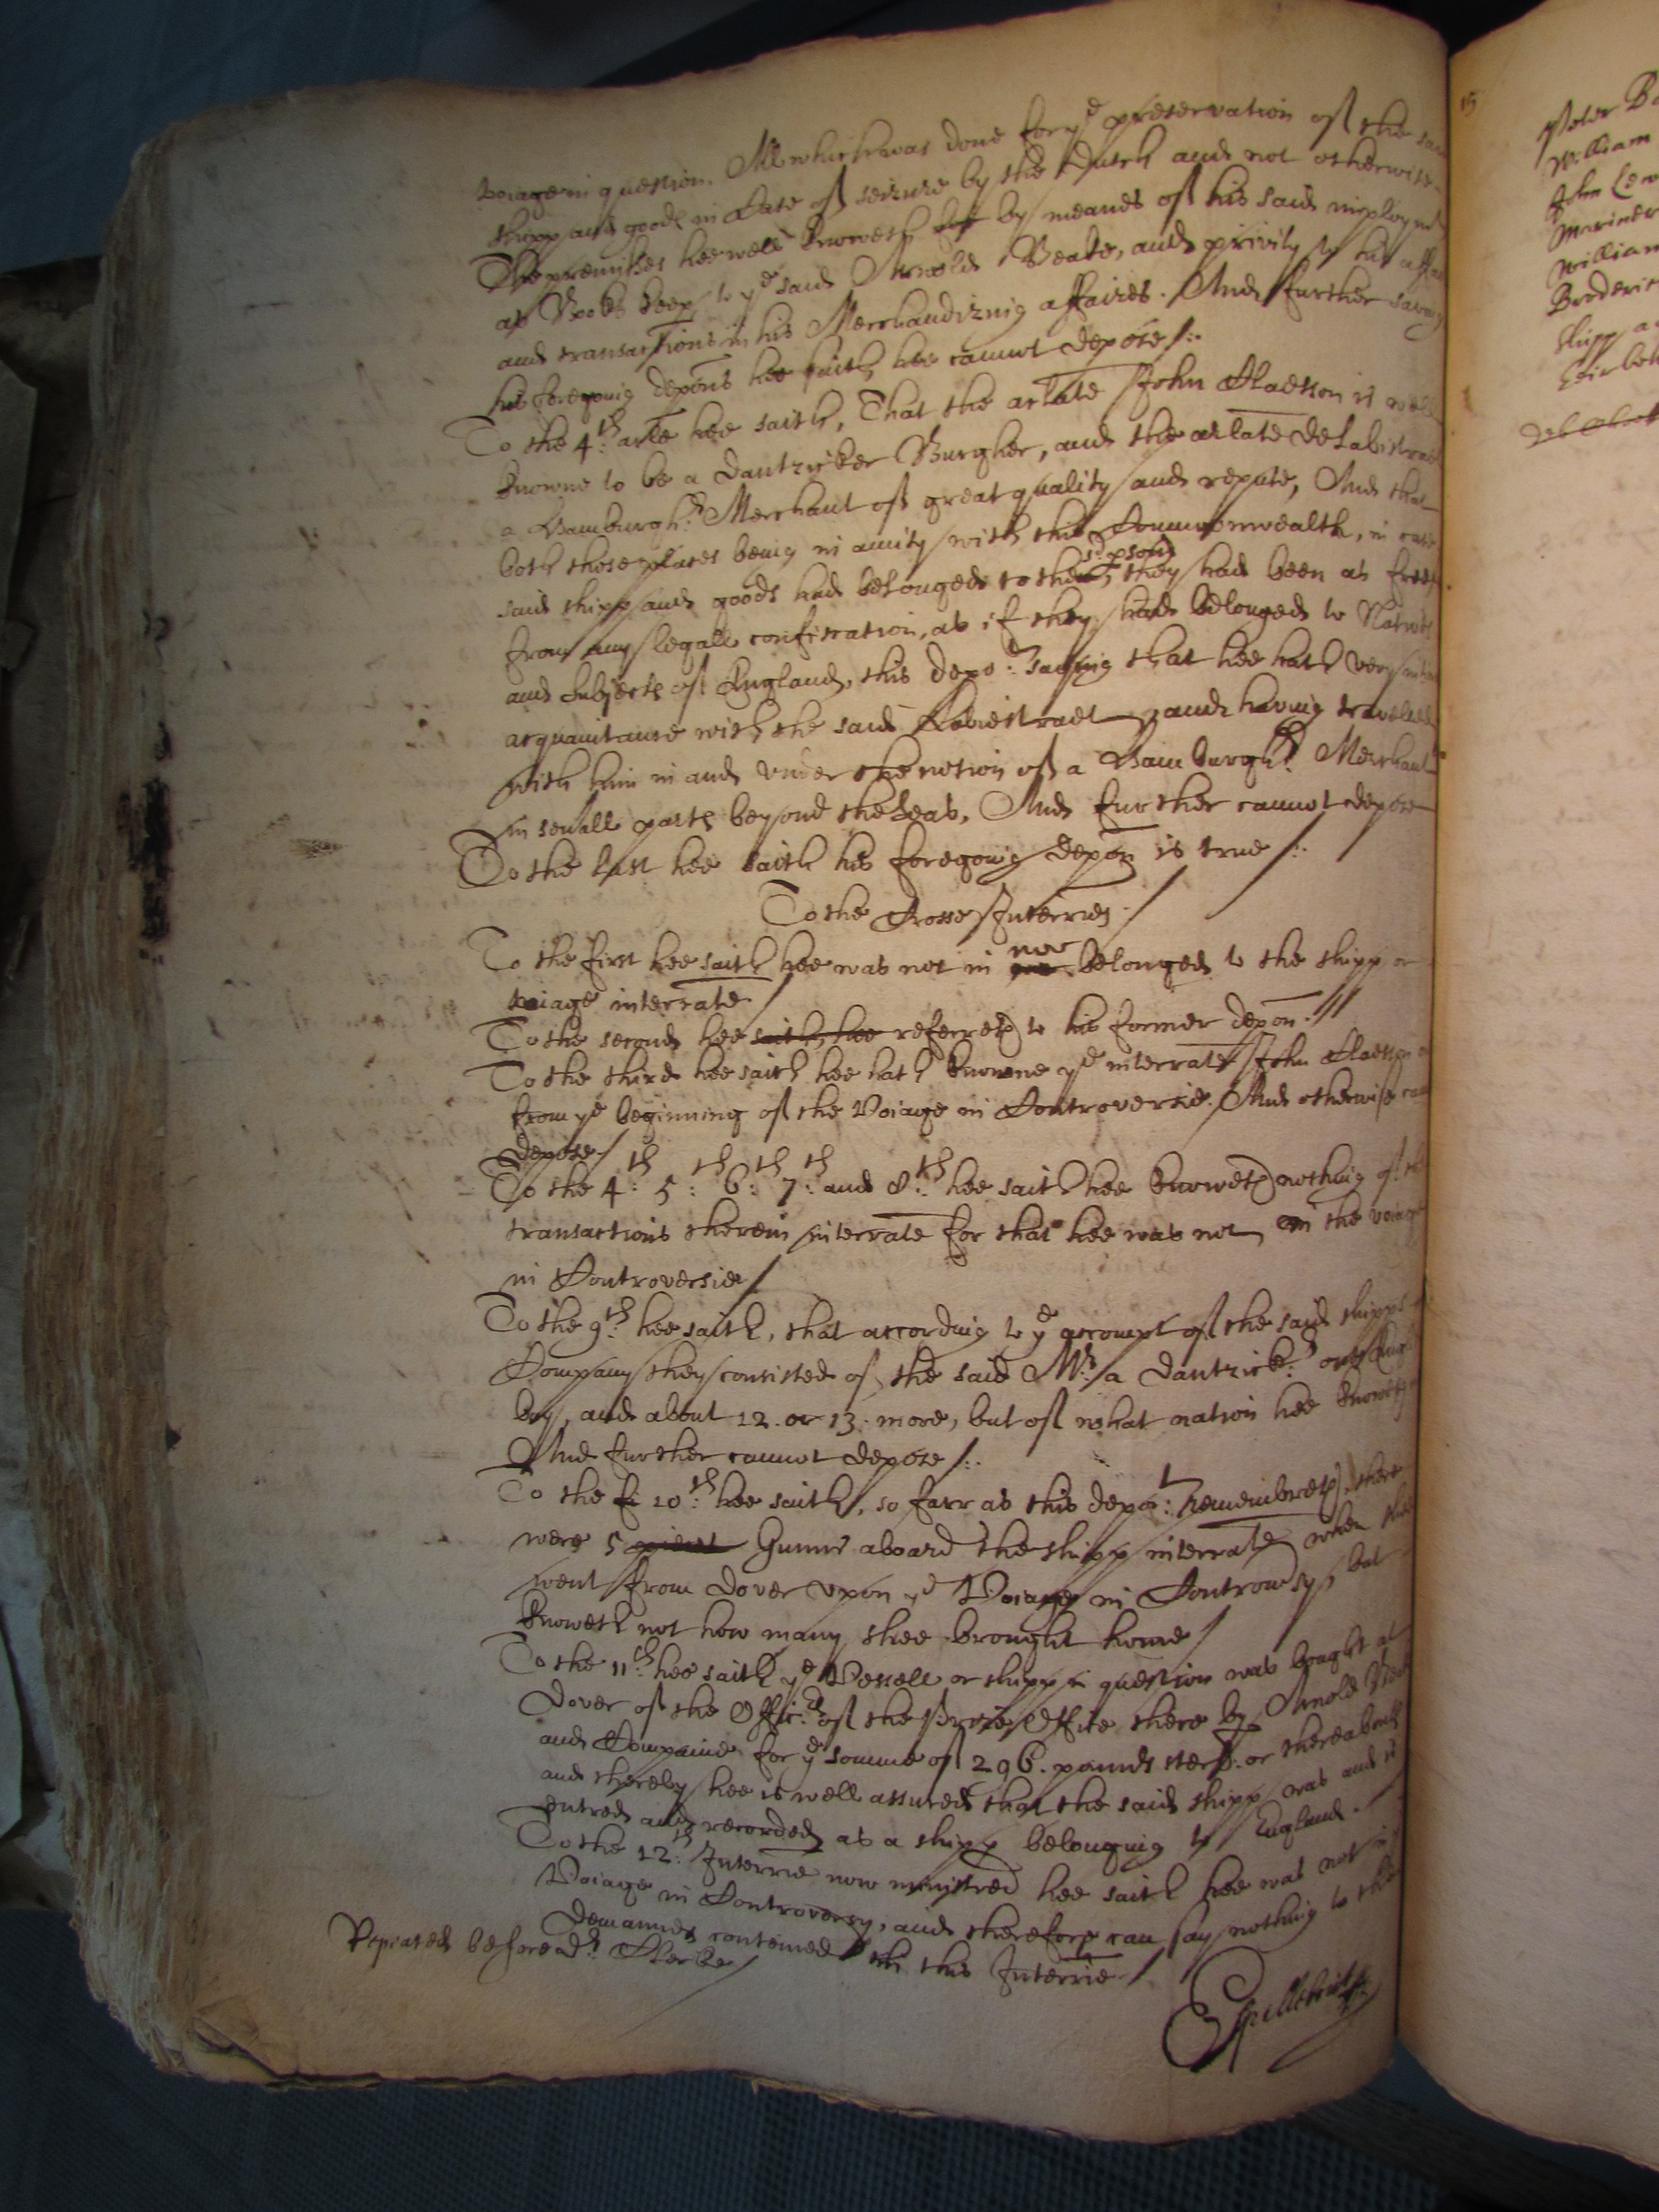 voiage in question. All which was done for ye preservation of the said
shipp and goods in Case of seizure by the Dutch and not otherwise.
The premisses hee well knoweth by meanes of his said imploymt
as Booke keepr to ye said Arnold Beake, and privity to his affai
and transactions in his Merchandizing affaires. And further saving
his foregoing depons hee saith hee cannot depose/:.
To the 4th: arle hee saith, That the arlate John Claesson is well
knowne to be a Dantzicker Burgher, and the arlate De Labistraet
a Hamburghr: Merchant of great quality and repute, And that
both those places being in amity with this Commonwealth, in case
said shipp and goods had belonged to the sd: psons they had been as free
from any legall confiscation, as if they had belonged to Natives
and Subjects of England, this depot: saying that hee hath very
acquaintance with the said Labistraet and having travelled
with him in and under the notion of a Hamburghr: Merchant
in severall parts beyond the Seas, And further cannot depose
To the last hee saith his foregoing depon is true/:.
To the Crosse Interries
To the first hee saith hee was not in nor belonged to the shipp or
voiage interrate/
To the second hee saith hee referreth to his former depon.//
To the third hee saith hee hath knowne ye interrate John Claesson
from ye beginning of the Voiage in Controversie. And otherwise can
depose/
To the 4th: 5th: 6th: 7th: and 8th: hee saith hee knoweth nothing of the
transactions therein interrate for that hee was not in the voiage
in Controversie/
To the 9th: hee saith, that according to ye accompt of the said shipps
Company they consisted of the said Mr: a Dantzickr: one
boy, and about 12. or 13. more, but of what nation hee knoweth
And further cannot depose/:.
To the 10th: hee saith, so farr as this depot: remembreth, there
were 5 Gunns aboard the shipp interrate when shee
went from Dover upon ye Voiage in Controversy, but
knoweth not how many shee brought home/
To the 11th: hee saith ye Vessell or shipp in question was bought at
Dover of the Officrs: of the Prize Office there by Arnold Beake
and Companie for ye somme of 296. pounds sterl. or thereabouts
and thereby hee is well assured that the said shipp was and is
entred and recorded as a shipp belonging to England.
To the 12th: Interrie now ministred hee saith hee was not in
Voiage in Controversy, and therefore can say nothing to the
demannds conteined in this Interrie/
Repeated before dr: Clerke/
15
Peter
William
John
Mariner
William
Broderic
shipp